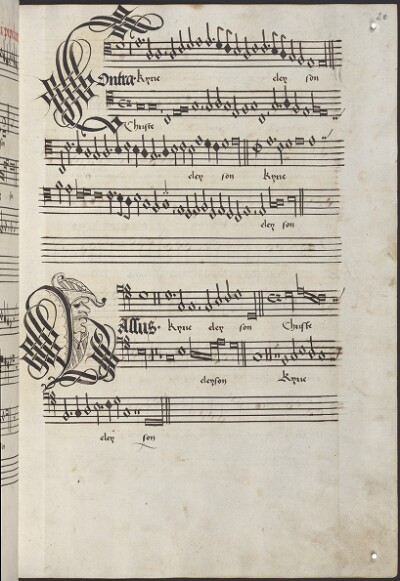 20
Contra Kyrie eley son
Christe
eley son Kyrie
eley son
Bassus. Kyrie eley son Christe
eleyson Kyrie
eley son